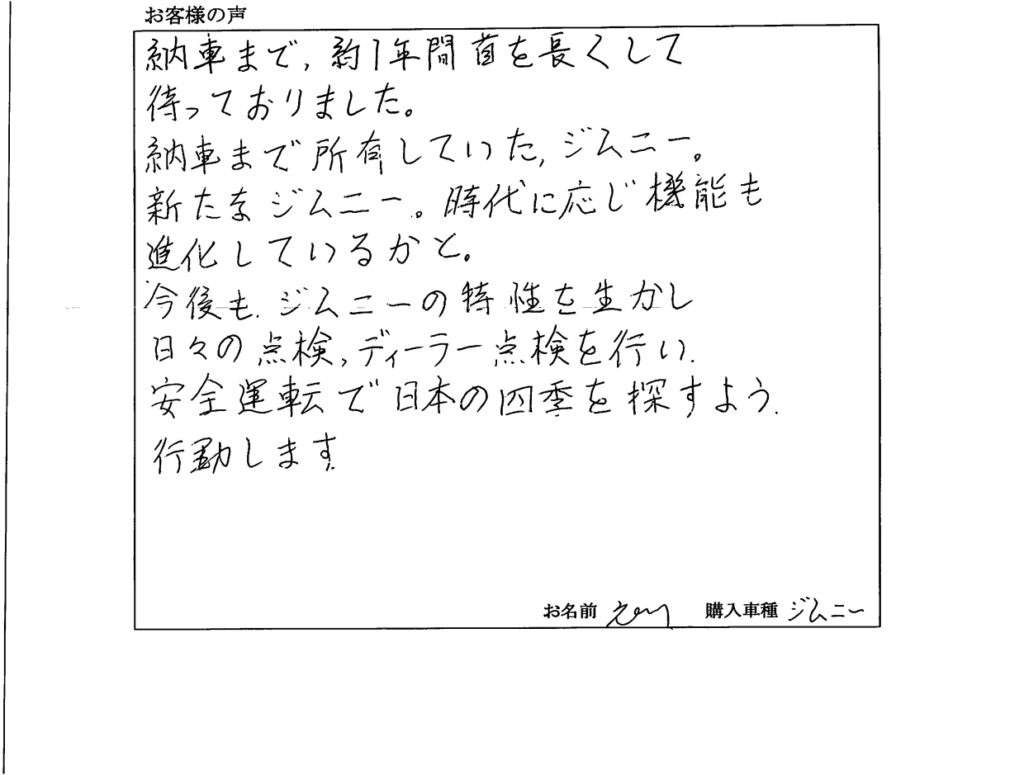 お客様の声
納車まで、約1年間首を長くして
待っておりました。
納車まで所有していた、ジムニー。
新たなジムニー。時代に応じ機能も
進化しているかと。
今後も、ジムニーの特性を生かし
日々の点検、ディーラー点検を行い、
安全運転で日本の四季を探すよう、
行動します。
お名前 購入車種 ジムニー